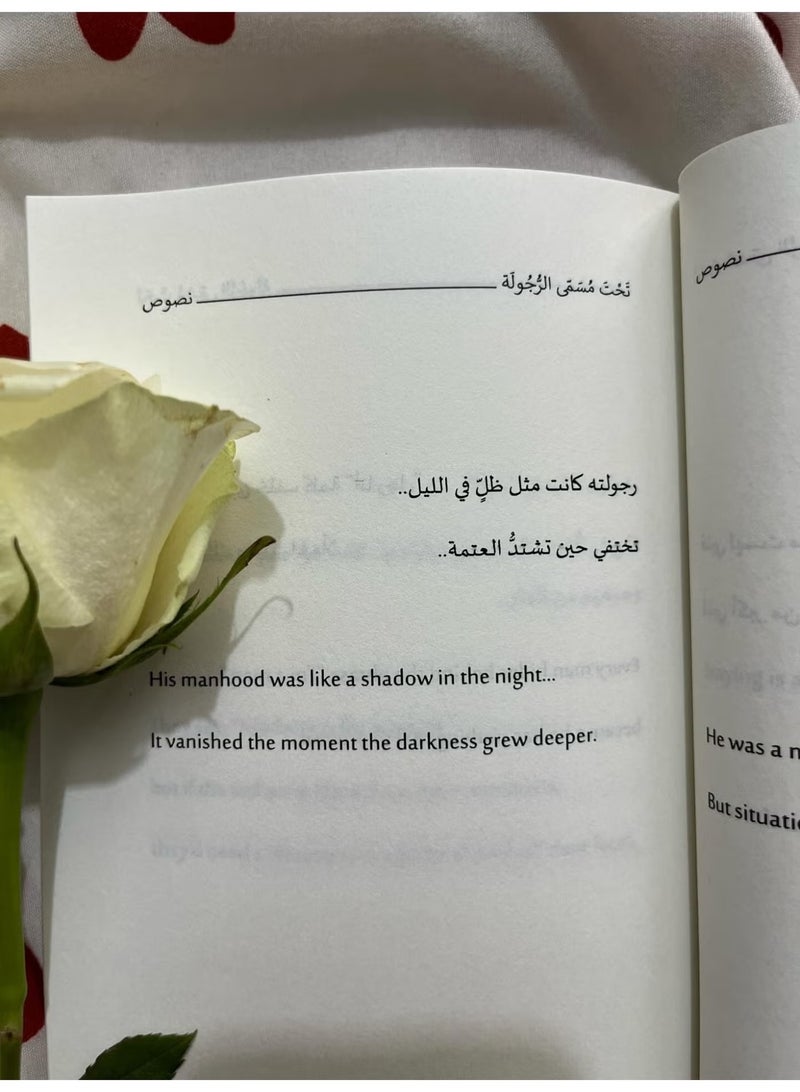 تَحْتَ مُسَمّى الرُّجُولَة نصوص
رجولته كانت مثل ظلٍّ في الليل..
تختفي حين تشتدُّ العتمة..
His manhood was like a shadow in the night...
It vanished the moment the darkness grew deeper.
نصوص
He was a
But